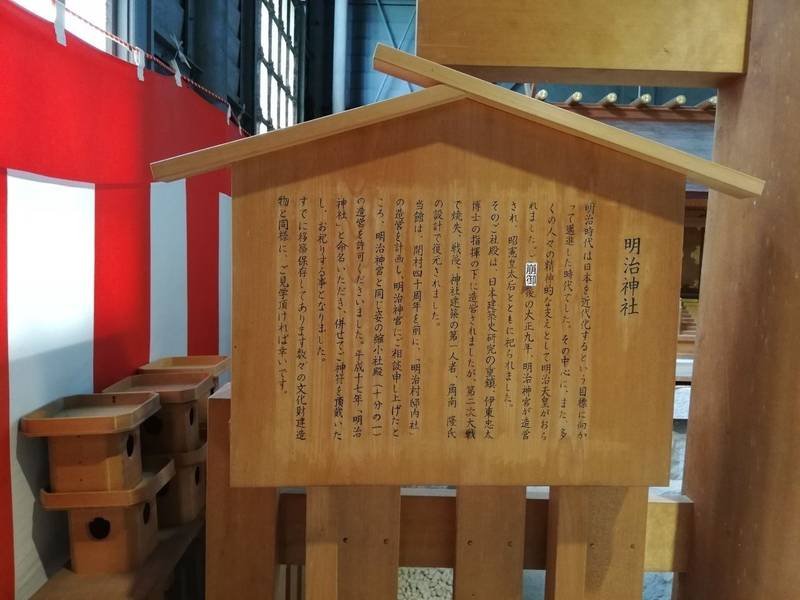 明治神社
明治時代は日本を近代化するという目標に向か
って邁進した時代でした。その中心に、また、多
くの人々の精神的な支えとして明治天皇がおら
れました。崩御後の大正九年、明治神宮が造営
され、昭憲皇太后とともに祀られました。
そのご社殿は、日本建築史研究の重鎮、伊東忠太
博士の指揮の下に造営されましたが、第二次大戦
で焼失、戦後、神社建築の第一人者、角南 隆氏
の設計で復元されました。
当館は、開村四十周年を前に、「明治村邸内社」
の造営を計画し、明治神宮にご相談申し上げたと
ころ、明治神宮と同じ姿の縮小社殿（十分の一）
の造営を許可くださいました。平成十七年、「明治
神社」と命名いただき、併せてご神符を頂戴いた
し、お祀りする事となりました。
すでに移築保存してあります数々の文化財建造
物と同様に、ご見学頂ければ幸いです。